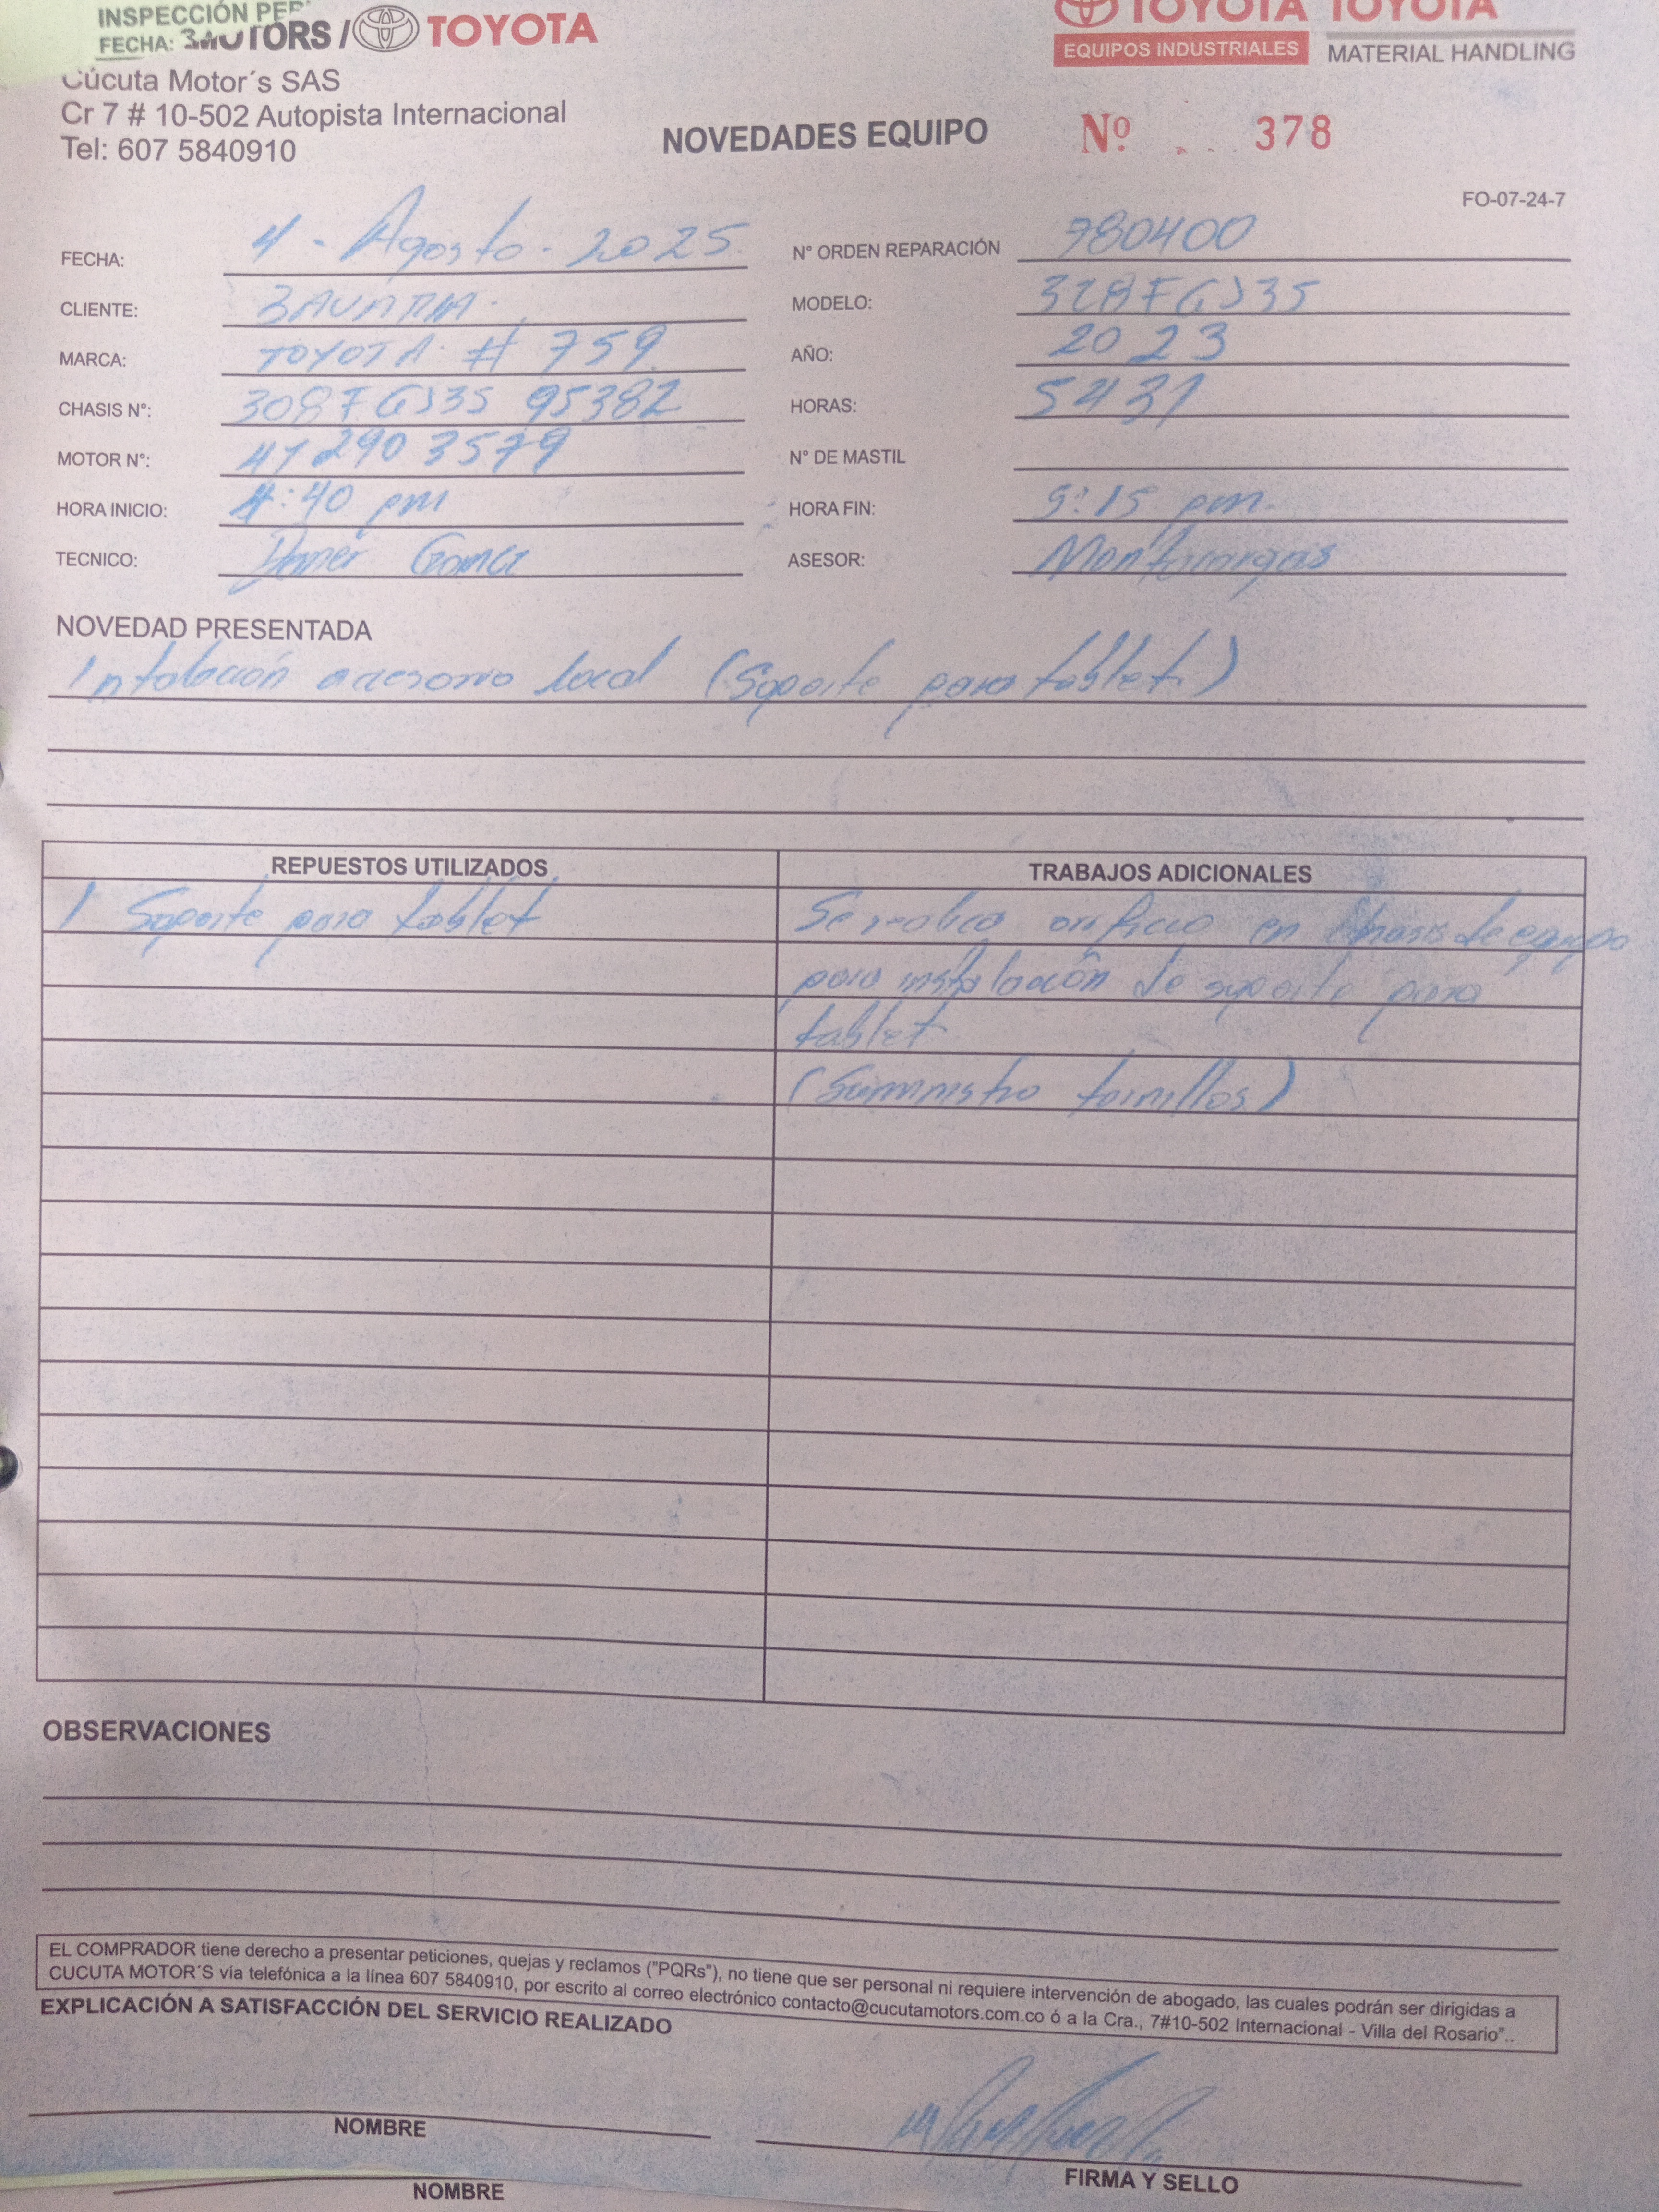 INSPECCIÓN PER
FECHA: 3
MOTORS / TOYOTA
TOYOTA TOYOTA
EQUIPOS INDUSTRIALES MATERIAL HANDLING
Cúcuta Motor´s SAS
Cr 7 # 10-502 Autopista Internacional
Tel: 607 5840910
NOVEDADES EQUIPO
Nº 378
FO-07-24-7
FECHA: 4 - Agosto - 2025 N° ORDEN REPARACIÓN 980400
CLIENTE: MODELO: 328FGJ35
MARCA: TOYOTA # 759 AÑO: 2023
CHASIS N°: 308FGJ35 95382 HORAS: 5431
MOTOR N°: 412903579 N° DE MASTIL
HORA INICIO: 4:40 pm HORA FIN: 5:15 pm.
TECNICO: ASESOR: Montacargas
NOVEDAD PRESENTADA
Intalación accesorio local (Soporte para tablet.)
REPUESTOS UTILIZADOS TRABAJOS ADICIONALES
1 Soporte para tablet Se realiza orificio en de equipo
para instalación de soporte para
tablet
(Suministro tornillos)
OBSERVACIONES
EL COMPRADOR tiene derecho a presentar peticiones, quejas y reclamos ("PQRs"), no tiene que ser personal ni requiere intervención de abogado, las cuales podrán ser dirigidas a
CUCUTA MOTOR´S vía telefónica a la línea 607 5840910, por escrito al correo electrónico contacto@cucutamotors.com.co ó a la Cra., 7#10-502 Internacional - Villa del Rosario"..
EXPLICACIÓN A SATISFACCIÓN DEL SERVICIO REALIZADO
NOMBRE
FIRMA Y SELLO
NOMBRE